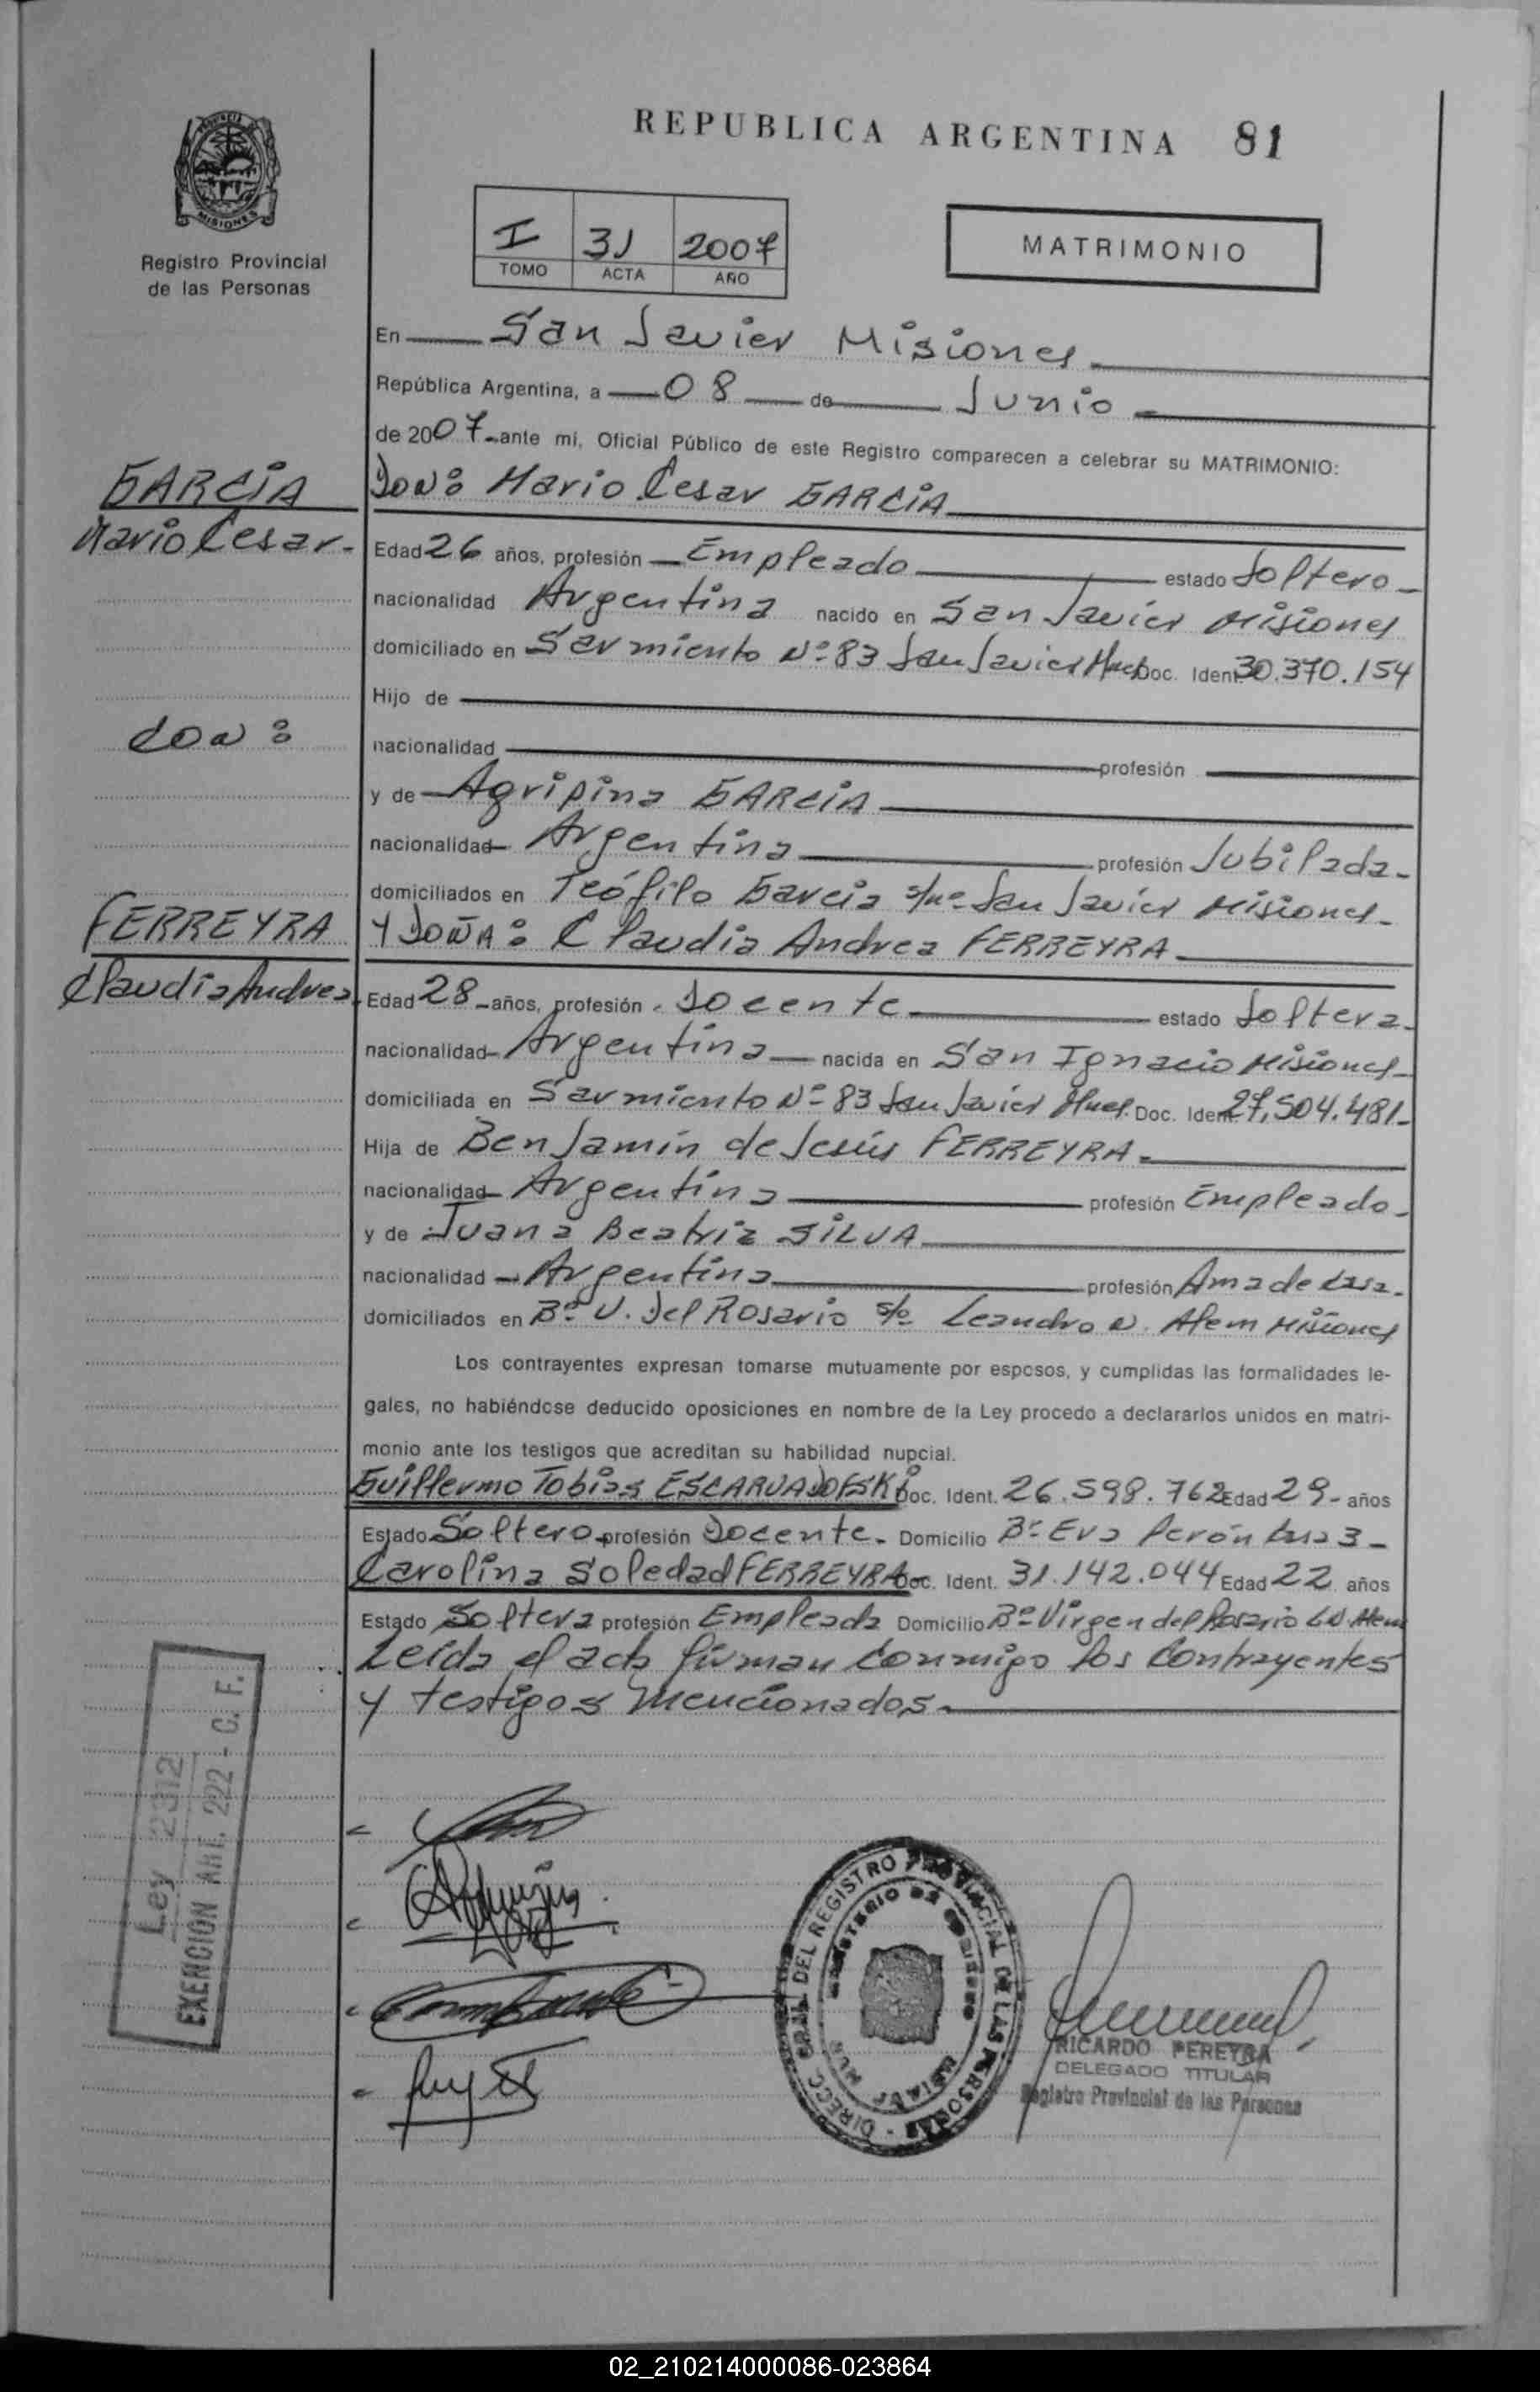 REPUBLICA ARGENTINA 81
MISIONES
Registro Provincial
de las Personas
I 31 2007
TOMO ACTA AÑO
MATRIMONIO
En San Javier Misiones
República Argentina, a 08 de Junio
de 2007 ante mi, Oficial Público de este Registro comparecen a celebrar su MATRIMONIO:
GARCIA
Mario Cesar.-
DON: Mario Cesar GARCIA
Edad 26 años, profesión Empleado estado Soltero
nacionalidad Argentina nacido en San Javier Misiones
domiciliado en Sarmiento Nº 83 San Javier Mnes Doc. Ident. 30.370.154
Hijo de
con:
nacionalidad profesión
y de Agripina GARCIA
nacionalidad Argentina profesión Jubilada
domiciliados en Teófilo Garcia s/nº San Javier Misiones
FERREYRA
Claudia Andrea
Y DOÑA: Claudia Andrea FERREYRA
Edad 28 años, profesión Docente estado Soltera
nacionalidad Argentina nacida en San Ignacio Misiones
domiciliada en Sarmiento Nº 83 San Javier Mnes. Doc. Ident. 27.504.481
Hija de Benjamín de Jesús FERREYRA
nacionalidad Argentina profesión Empleado
y de Juana Beatriz SILVA
nacionalidad Argentina profesión Ama de Casa
domiciliados en Bº V. Del Rosario Leandro N. Alem Misiones
Los contrayentes expresan tomarse mutuamente por esposos, y cumplidas las formalidades le-
gales, no habiéndose deducido oposiciones en nombre de la Ley procedo a declararlos unidos en matri-
monio ante los testigos que acreditan su habilidad nupcial.
Guillermo Tobias ESCARVADOFSKI Doc. Ident. 26.598.762 Edad 29 años
Estado Soltero profesión Docente Domicilio Bº Eva Perón Casa 3
Carolina Soledad FERREYRA Doc. Ident. 31.142.044 Edad 22 años
Estado Soltera profesión Empleada Domicilio Bº Virgen del Rosario LN Alem
Leída el acta firman conmigo los contrayentes
y testigos mencionados
Ley 2312
EXENCION ART. 222 - C. F.
DIRECC. GRAL. DEL REGISTRO PROVINCIAL DE LAS PERSONAS
RICARDO PEREYRA
DELEGADO TITULAR
Registro Provincial de las Personas
02_210214000086-023864